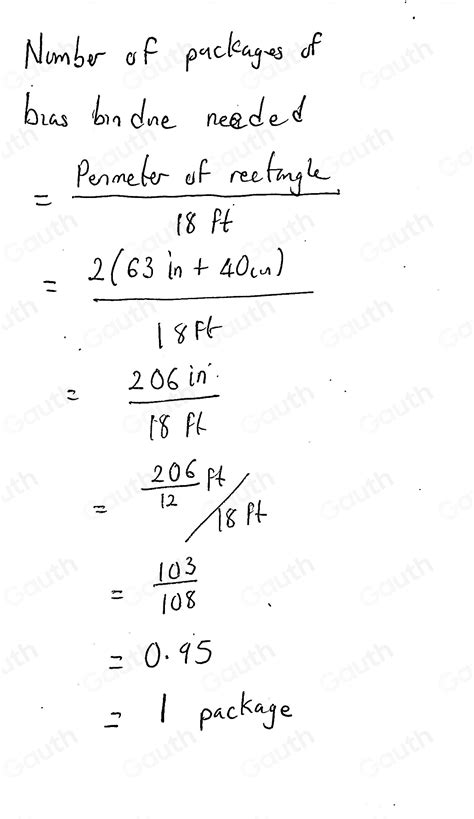 Number of packages of
bias bindne needed
= Permeter of rectangle
18 ft
= 2(63 in + 40in)
18 Ft
= 206 in
18 ft
= 206/12 ft / 18 ft
= 103
108
= 0.95
= 1 package